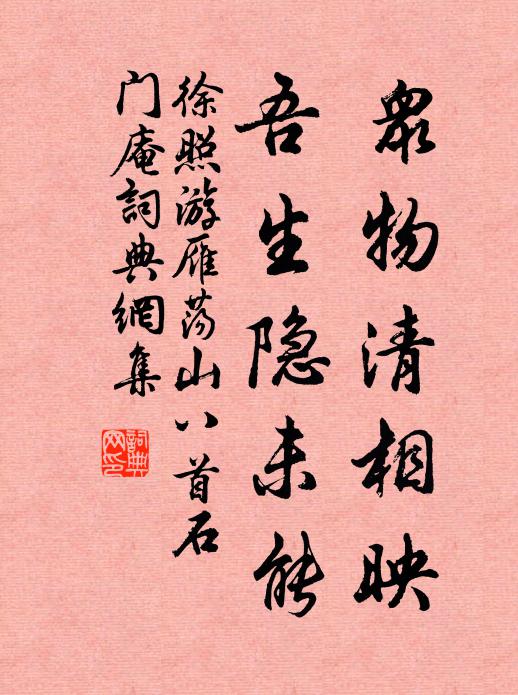 衆物清相映
吾生隐未能
徐照游雁荡山八首石
门庵詞典網集
詞典
网印